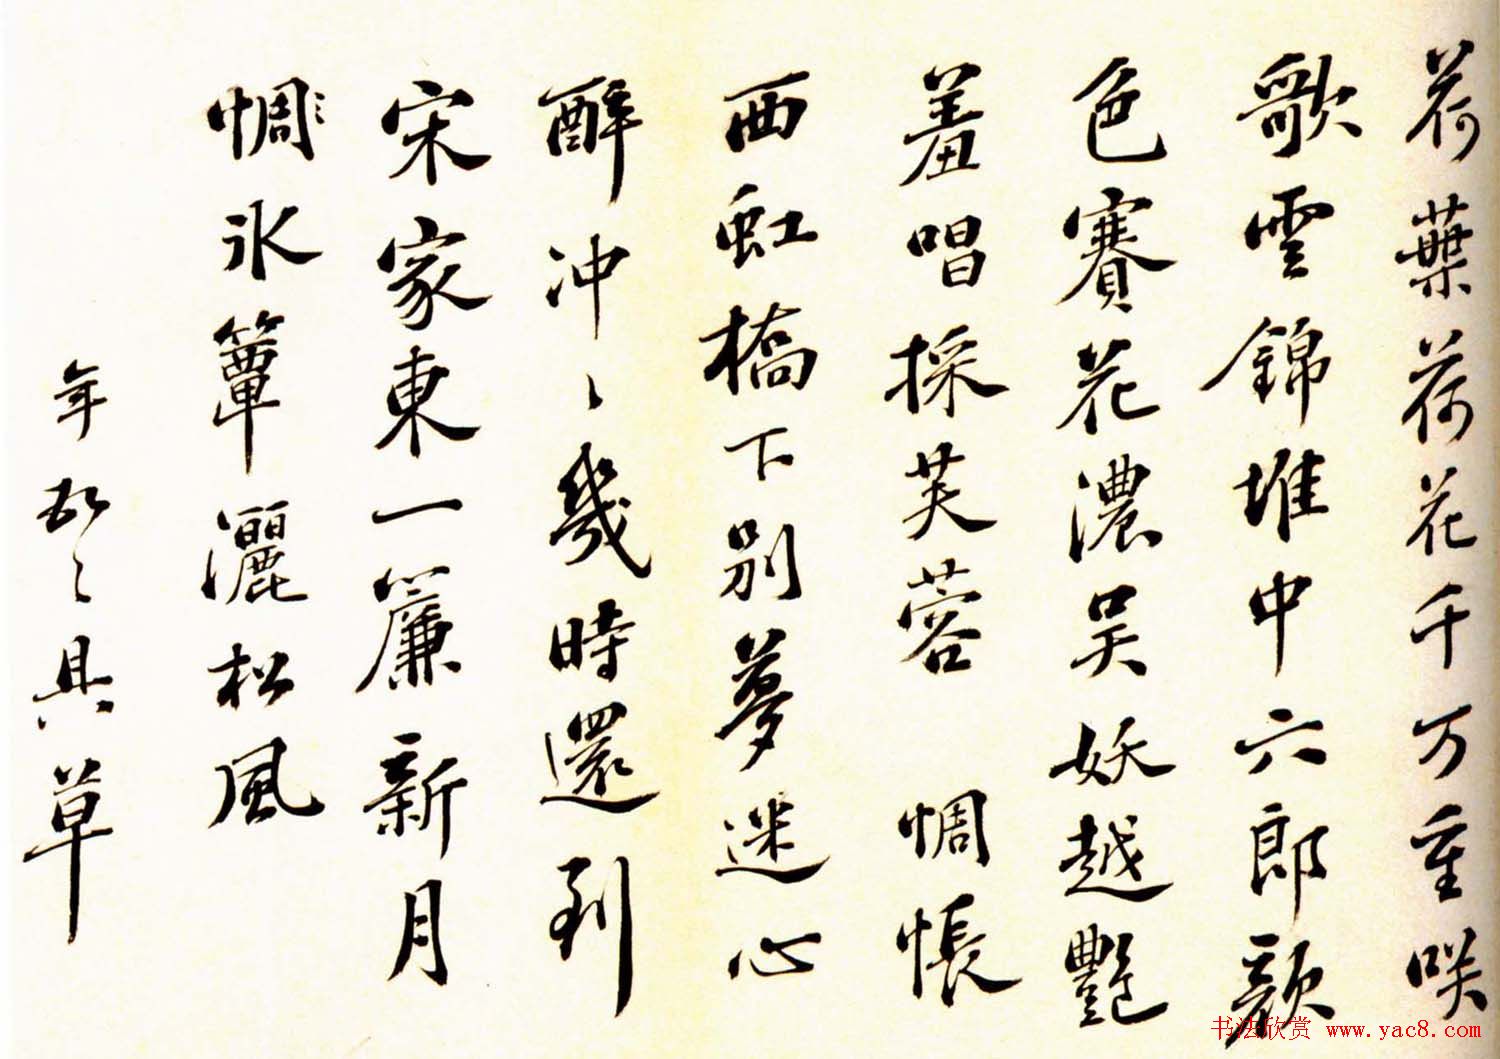 荷葉荷花千万重咲
歌雲錦堆中六郎顏
色賽花濃吴妖越艷
羞唱採芙蓉 惆悵
西虹橋下別夢迷心
醉冲〻幾時還到
宋家東一簾新月
惆氷簟灑松風
年 具草
书法欣赏 www.yac8.com